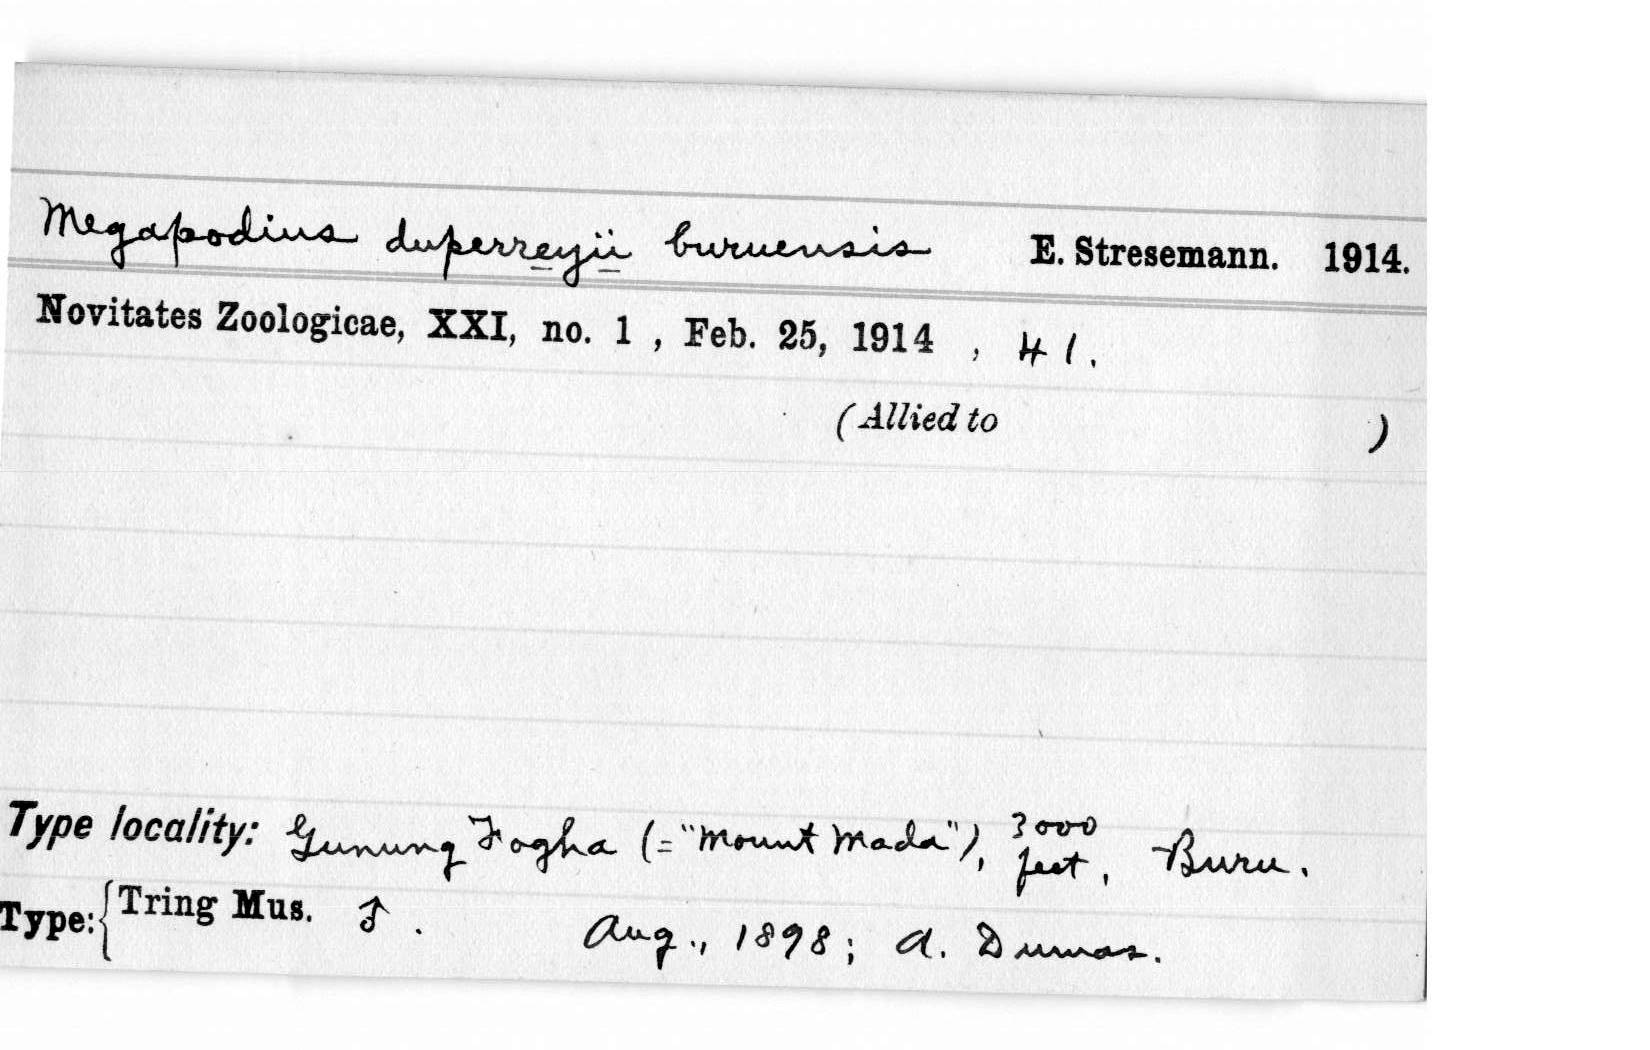 Megapodius duperreyii buruensis E. Stresemann. 1914.
Novitates Zoologicae, XXI, no. 1 , Feb. 25, 1914 , 41.
(Allied to )
Type locality: Gunung Fogha (= "Mount Mada"), 3000 feet, Buru.
Type: { Tring Mus. ♂. Aug., 1898; A. Dumas.